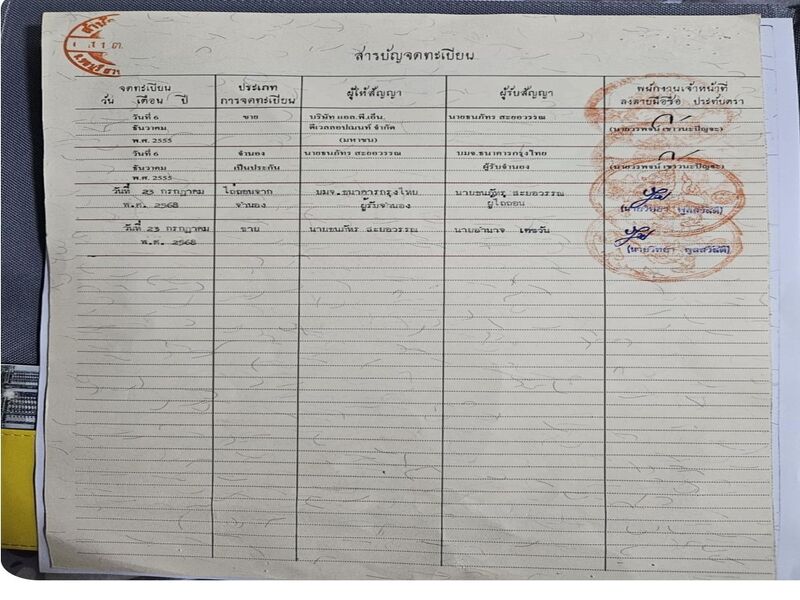 สารบัญจดทะเบียน
จดทะเบียน
วัน เดือน ปี
ประเภท
การจดทะเบียน
ผู้ให้สัญญา
ผู้รับสัญญา
พนักงานเจ้าหน้าที่
ลงลายมือชื่อ ประทับตรา
วันที่ 6
ธันวาคม
พ.ศ. 2555
ขาย
บริษัท แอล.พี.เอ็น.
ดีเวลลอปเมนท์ จำกัด
(มหาชน)
นายธนภัทร สะยอวรรณ
(นายวรพจน์ เชาวนะปัญจะ)
วันที่ 6
ธันวาคม
พ.ศ. 2555
จำนอง
เป็นประกัน
นายธนภัทร สะยอวรรณ
บมจ.ธนาคารกรุงไทย
ผู้รับจำนอง
(นายวรพจน์ เชาวนะปัญจะ)
วันที่ 23 กรกฎาคม
พ.ศ. 2568
ไถ่ถอนจาก
จำนอง
บมจ.ธนาคารกรุงไทย
ผู้รับจำนอง
นายธนภัทร สะยอวรรณ
ผู้ไถ่ถอน
(นายวิทยา พูลสวัสดิ์)
วันที่ 23 กรกฎาคม
พ.ศ. 2568
ขาย
นายธนภัทร สะยอวรรณ
นายอำนาจ
(นายวิทยา พูลสวัสดิ์)